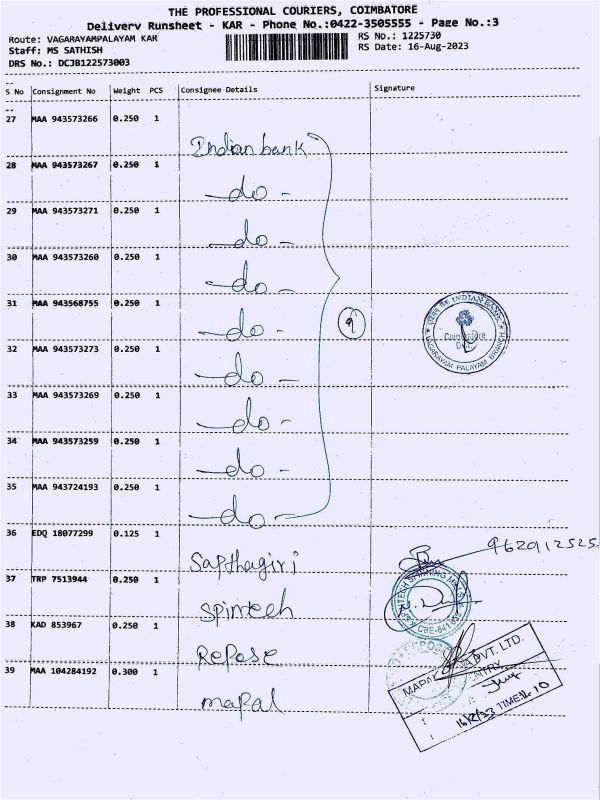 THE PROFESSIONAL COURIERS, COIMBATORE
Delivery Runsheet - KAR - Phone No.:0422-3505555 - Page No.:3
Route: VAGARAYAMPALAYAM KAR
RS No.: 1225730
Staff: MS SATHISH
RS Date: 16-Aug-2023
DRS No.: DCJB122573003
S No Consignment No Weight PCS Consignee Details Signature
27 MAA 943573266 0.250 1
Indian bank
28 MAA 943573267 0.250 1
- do -
29 MAA 943573271 0.250 1
- do -
30 MAA 943573260 0.250 1
- do -
31 MAA 943568755 0.250 1
- do -
9
INDIAN BANK
Coimbatore
Dist.
VAGARAYAM PALAYAM BRANCH
32 MAA 943573273 0.250 1
- do -
33 MAA 943573269 0.250 1
- do -
34 MAA 943573259 0.250 1
- do -
35 MAA 943724193 0.250 1
- do -
36 EDQ 18077299 0.125 1
9629912525
Sapthagiri
37 TRP 7513944 0.250 1
Spintech
38 KAD 853967 0.250 1
Repose
39 MAA 104284192 0.300 1
mapal
MAPAL PVT. LTD.
TIME